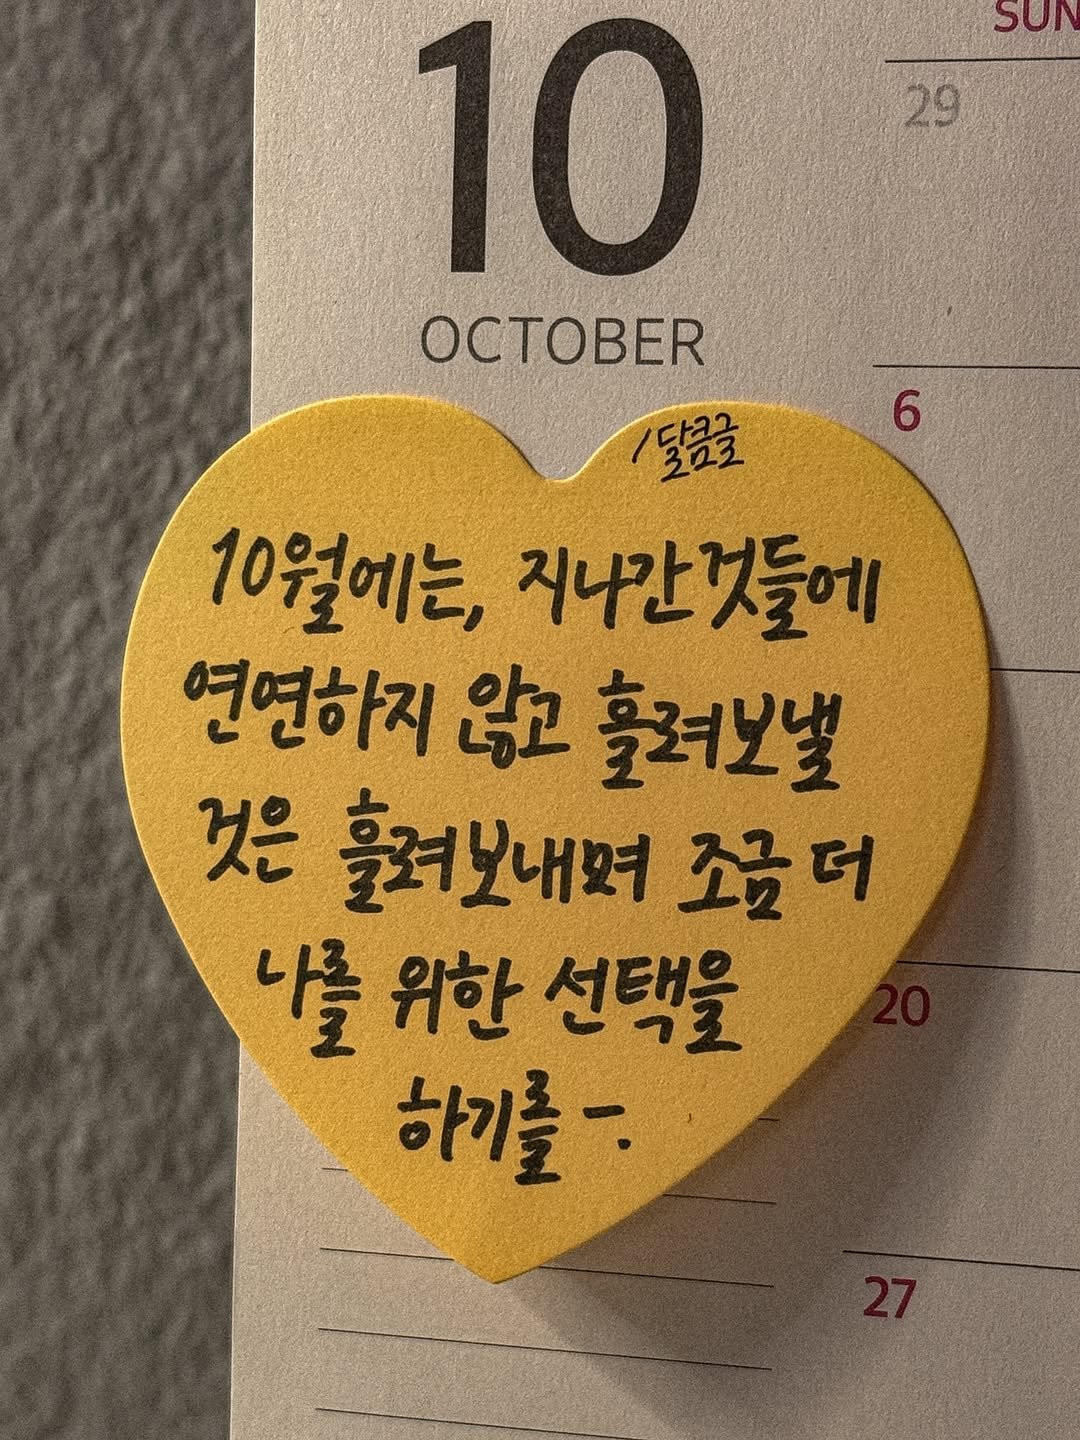 10
OCTOBER
SUN
29
6
20
27
/달콤글
10월에는, 지나간 것들에
연연하지 않고 흘려보낼
것은 흘려보내며 조금 더
나를 위한 선택을
하기를 -.